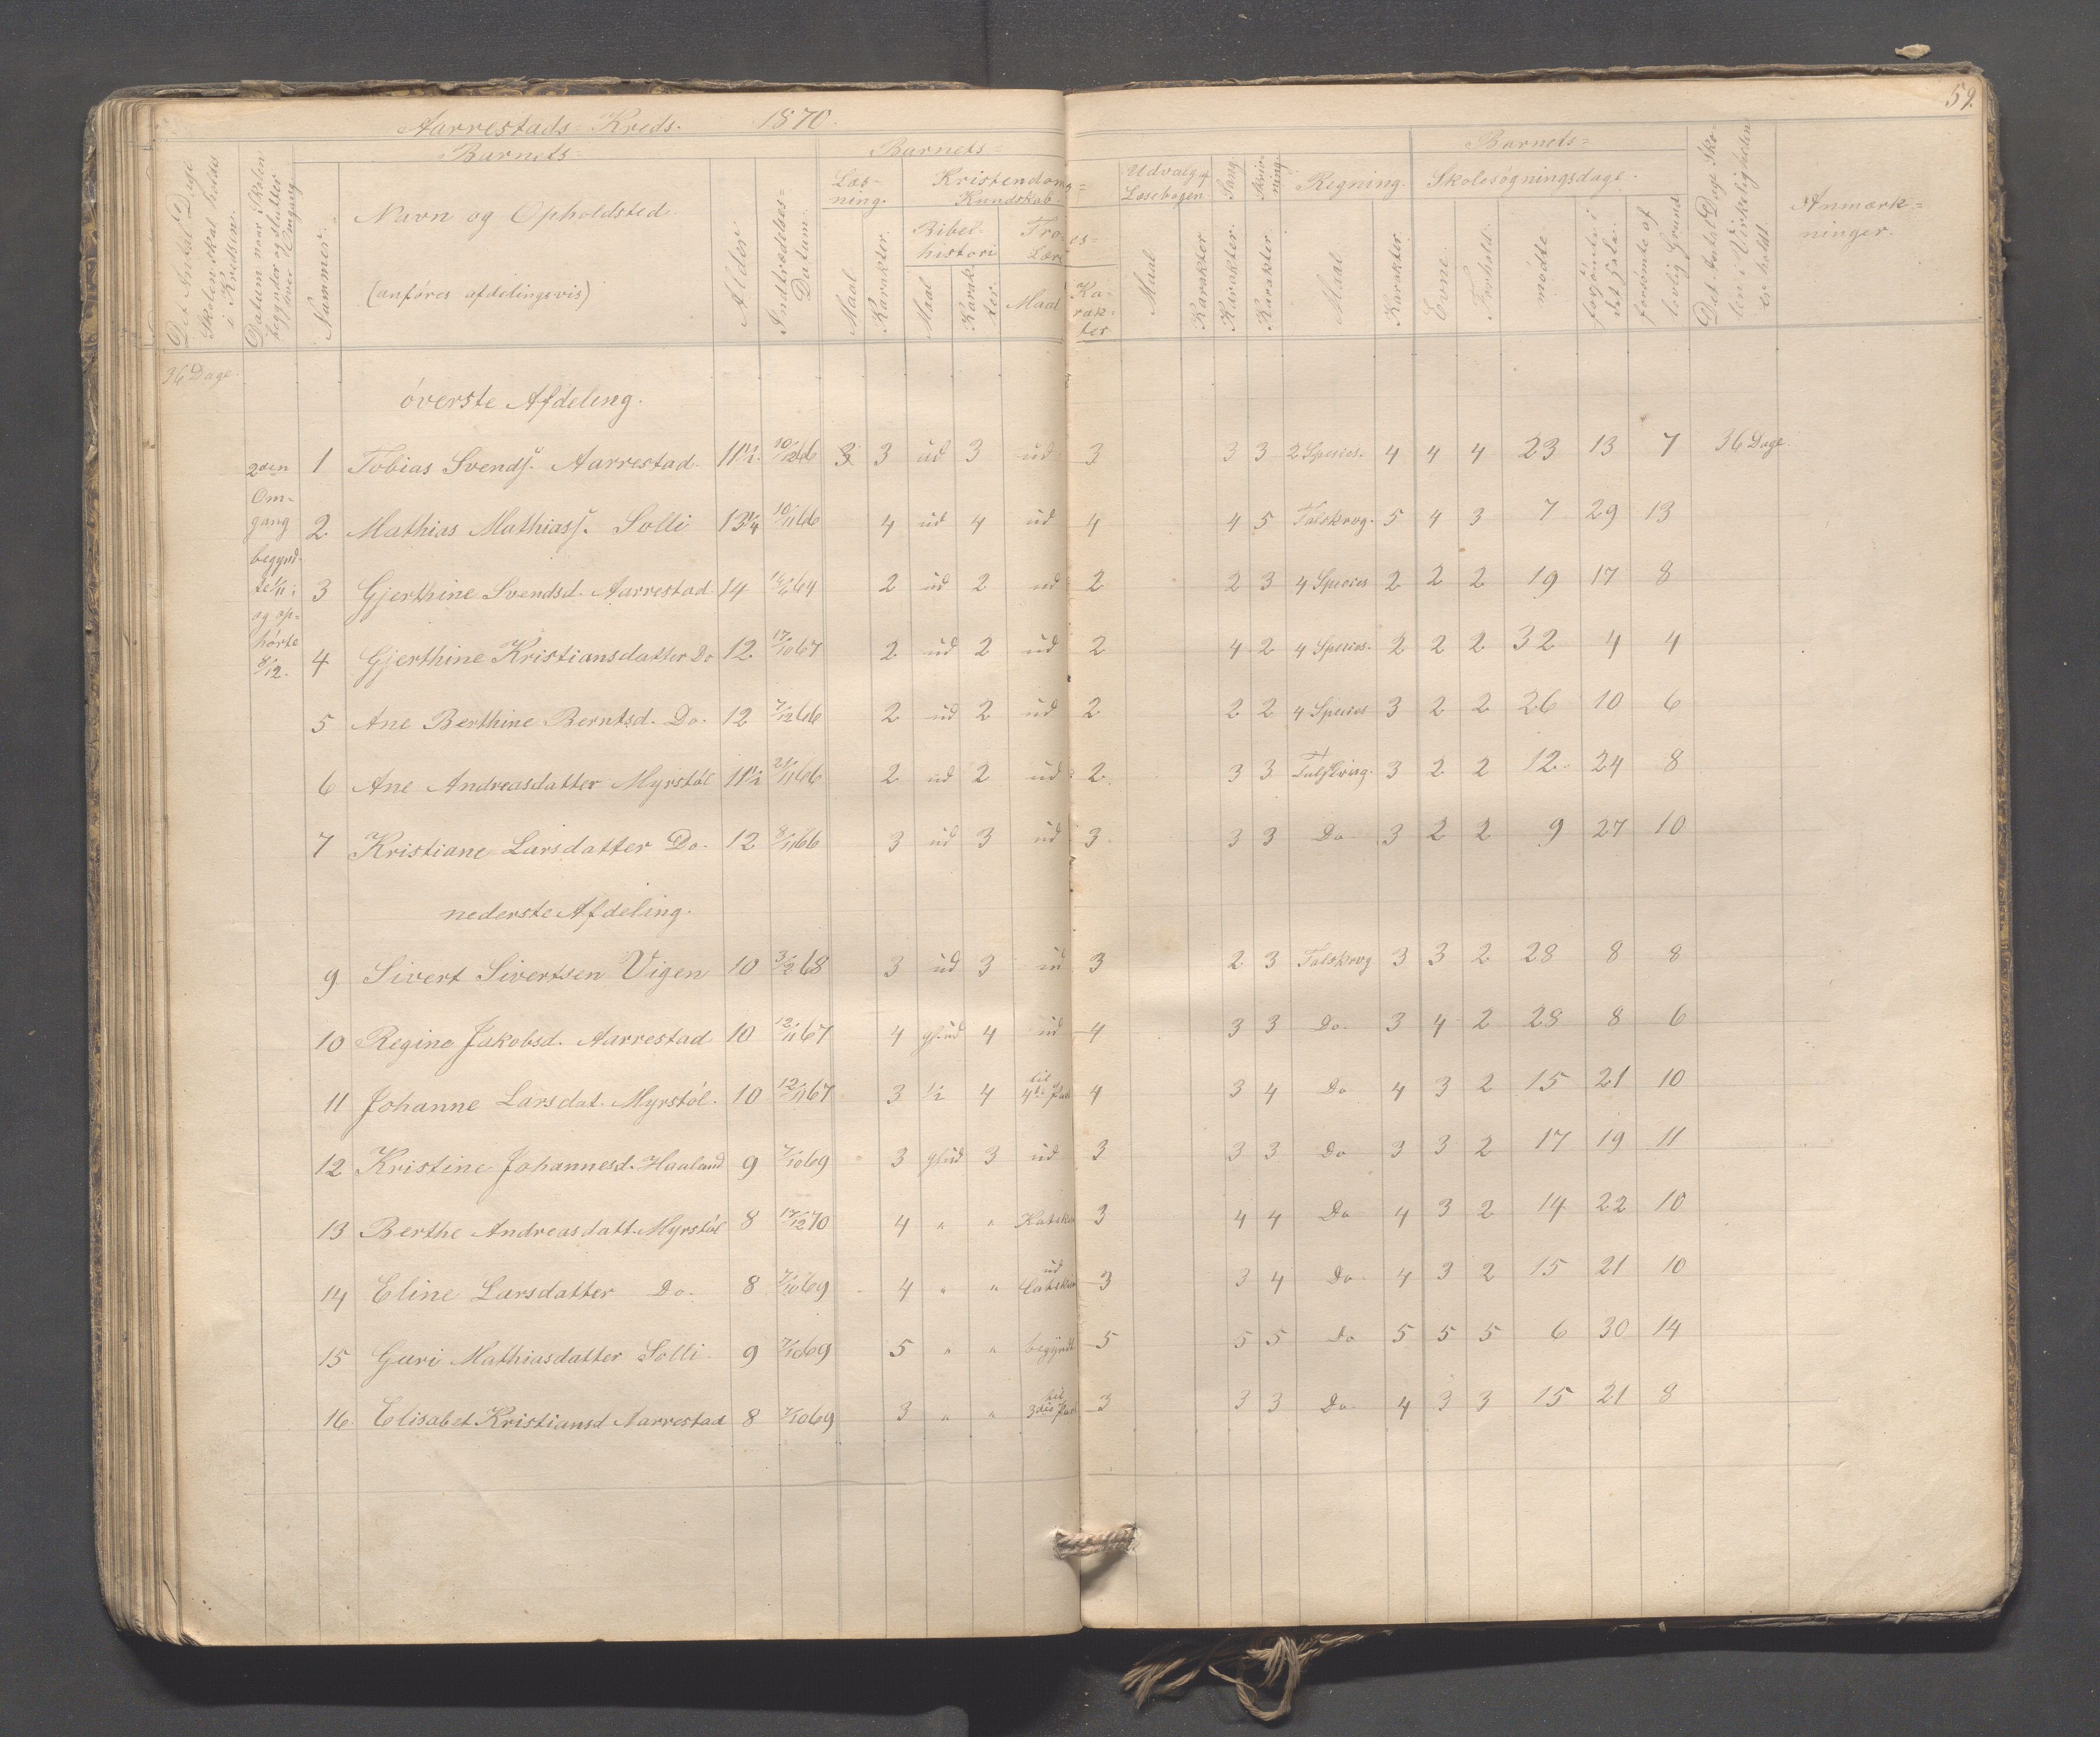 59.
Aarrestads= Kreds. 1870.
Barnets= Barnets= Barnets=
Det Antal Dage Skolen skal holdes i Kredsen.
Datum naar Skolen begynder og slutter hver Omgang
Nummer.
Navn og Opholdsted.
(anføres afdelingsvis)
Alder
Indtrædelses= Datum.
Læs- ning. Maal Karakter.
Kristendoms= Kundskab.
Bibel- histori Maal Karak- ter.
Tro- es= Lære Maal Ka- rak- ter
Udvalg af Læsebogen. Maal Karakter.
Sang Karakter.
Skriv- ning. Karakter
Regning. Maal Karakter.
Skolesøgningsdage.
Evne. Forhold. mødte forsømte i det Hele. forsømte af lovlig Grund
Det Antal Dage Sko- len i Virkeligheden er holdt.
Anmærk= ninger.
36 Dage.
øverste Afdeling.
2den Om- gang begynd- te 1/11 og op= hørte 8/12.
1 Tobias Svends. Aarrestad. 11 1/2 10/12 66 3 3 ud 3 ud 3 3 3 2 Species. 4 4 4 23 13 7 36 Dage.
2 Mathias Mathiass. Solli 13 1/4 10/11 66 4 ud 4 ud 4 4 5 Talskrvg. 5 4 3 7 29 13
3 Gjerthine Svendsd. Aarrestad 14 64 2 ud 2 ud 2 2 3 4 Species 2 2 2 19 17 8
4 Gjerthine Kristiansdatter Do 12 17/10 67 2 ud 2 ud 2 4 2 4 Species. 2 2 2 32 4 4
5 Ane Berthine Berntsd. Do. 12 7/12 66 2 ud 2 ud 2 2 2 4 Species 3 2 2 26 10 6
6 Ane Andreasdatter Myrstøl 11 1/2 21/11 66 2 ud 2 ud 2 3 3 3 2 2 12 24 8
7 Kristiane Larsdatter Do. 12 8/11 66 3 ud 3 ud 3 3 3 Do 3 2 2 9 27 10
nederste Afdeling.
9 Sivert Sivertsen Vigen 10 3/2 68 3 ud 3 ud 3 2 3 Talskrvg 3 3 2 28 8 8
10 Regine Jakobsd. Aarrestad 10 12/11 67 4 gl. ud 4 ud 4 3 3 Do. 3 4 2 28 8 6
11 Johanne Larsdat. Myrstøl. 10 12/11 67 3 1/2 4 til 4de Part 4 3 4 Do 4 3 2 15 21 10
12 Kristine Johannesd. Haaland 9 7/10 69 3 gl. ud 3 ud 3 3 3 Do 3 3 2 17 19 11
13 Berthe Andreasdatt. Myrstøl 8 17/12 70 4 " " 3 4 4 Do 4 3 2 14 22 10
14 Eline Larsdatter Do. 8 7/10 69 4 " " ud 3 3 4 Do. 4 3 2 15 21 10
15 Guri Mathiasdatter Solli. 9 7/10 69 5 " " begyndt 5 5 5 Do 5 5 5 6 30 14
16. Elisabet Kristiansd Aarrestad 8 7/10 69 3 " " til 3die Part 3 3 3 Do. 4 3 3 15 21 8